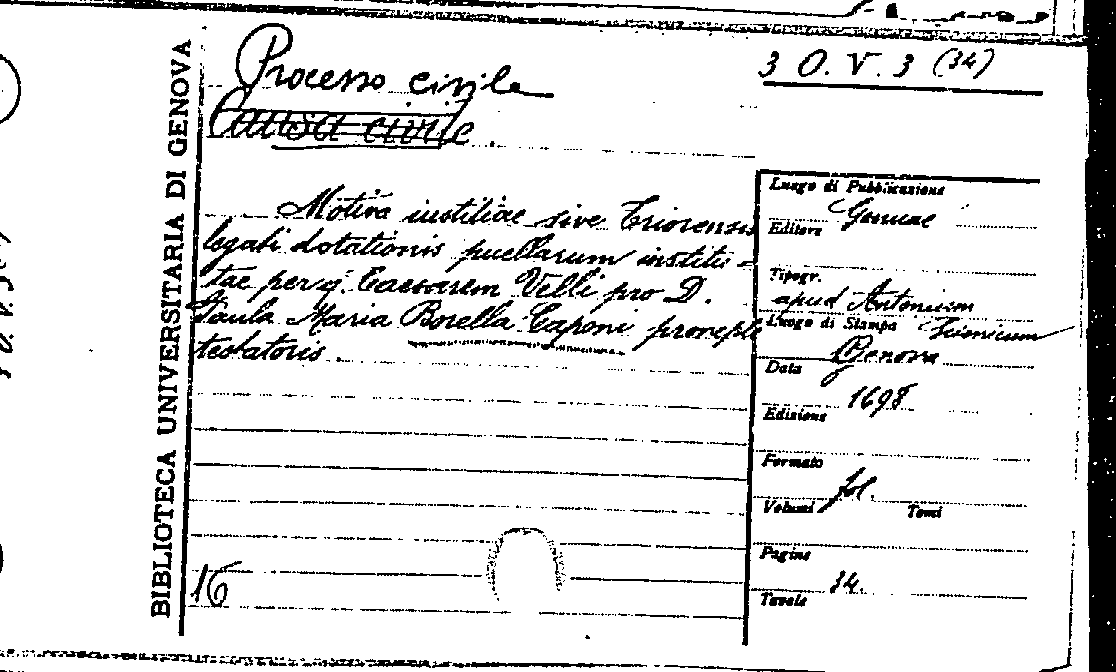 BIBLIOTECA UNIVERSITARIA DI GENOVA
Processo civile
Causa civile.
3 O. V. 3 (34)
Motiva iustitiae sive Triorensis
legati dotationis puellarum institu=
tae per q. Caesarem Velli pro D.
Paula Maria Borella Caponi pronepte
testatoris.
16
Luogo di Pubblicazione
Genuae
Editore
Tipogr.
apud Antonium
Luogo di Stampa
Genova
Data
1698
Edizione
Formato
fol.
Volumi Tomi
Pagine
34.
Tavole